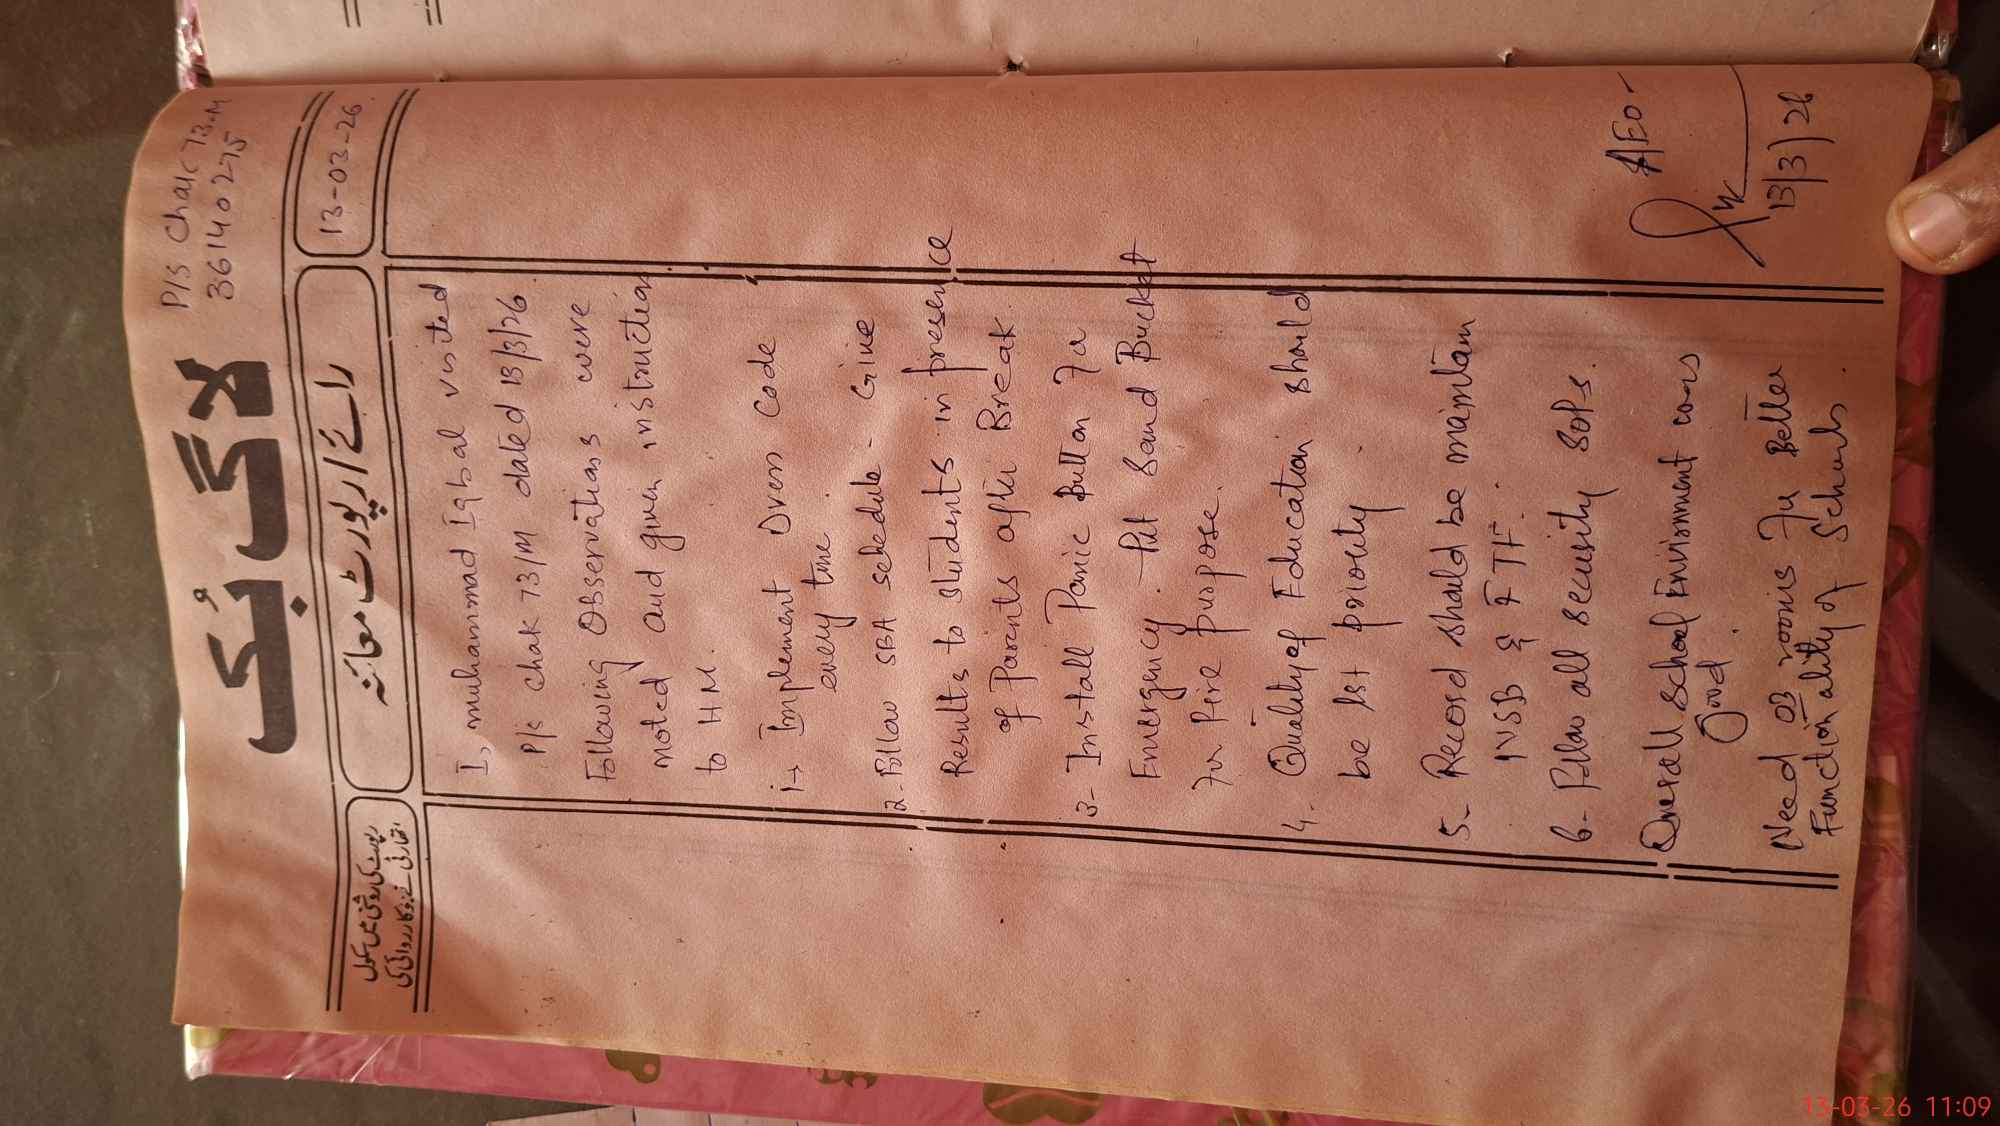 P/S Chak 73-M
36140275
لاگ بُک
13-03-26
رائے / رپورٹ معائنہ
رپورٹ کی روشنی میں سکول
اتھارٹی نے جو کارروائی کی
I, muhammad Iqbal visited
P/s chak 73/M dated 13/3/26
Following Observations were
noted and given instructions
to HM.
1-> Implement Dress Code
every time.
2- Follow SBA schedule - Give
Results to students in presence
of Parents after Break.
3- Install Panic Button For
Emergency. Put Sand Bucket
For Fire purpose.
4- Quality of Education should
be 1st priority.
5- Record should be maintain
NSB & FTF.
6- Follow all security SOPs.
Overall School Environment was
Good.
Need 03 rooms For Better
Functionality of Schools.
AEO-
13/3/26
13-03-26 11:09